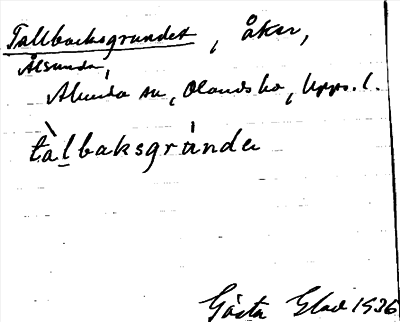 Tallbacksgrundet, åker,
Ålsunda,
Alunda sn, Olands hd, Upps. l.
tàlbaksgrùndeʀ
Gösta Glad 1936